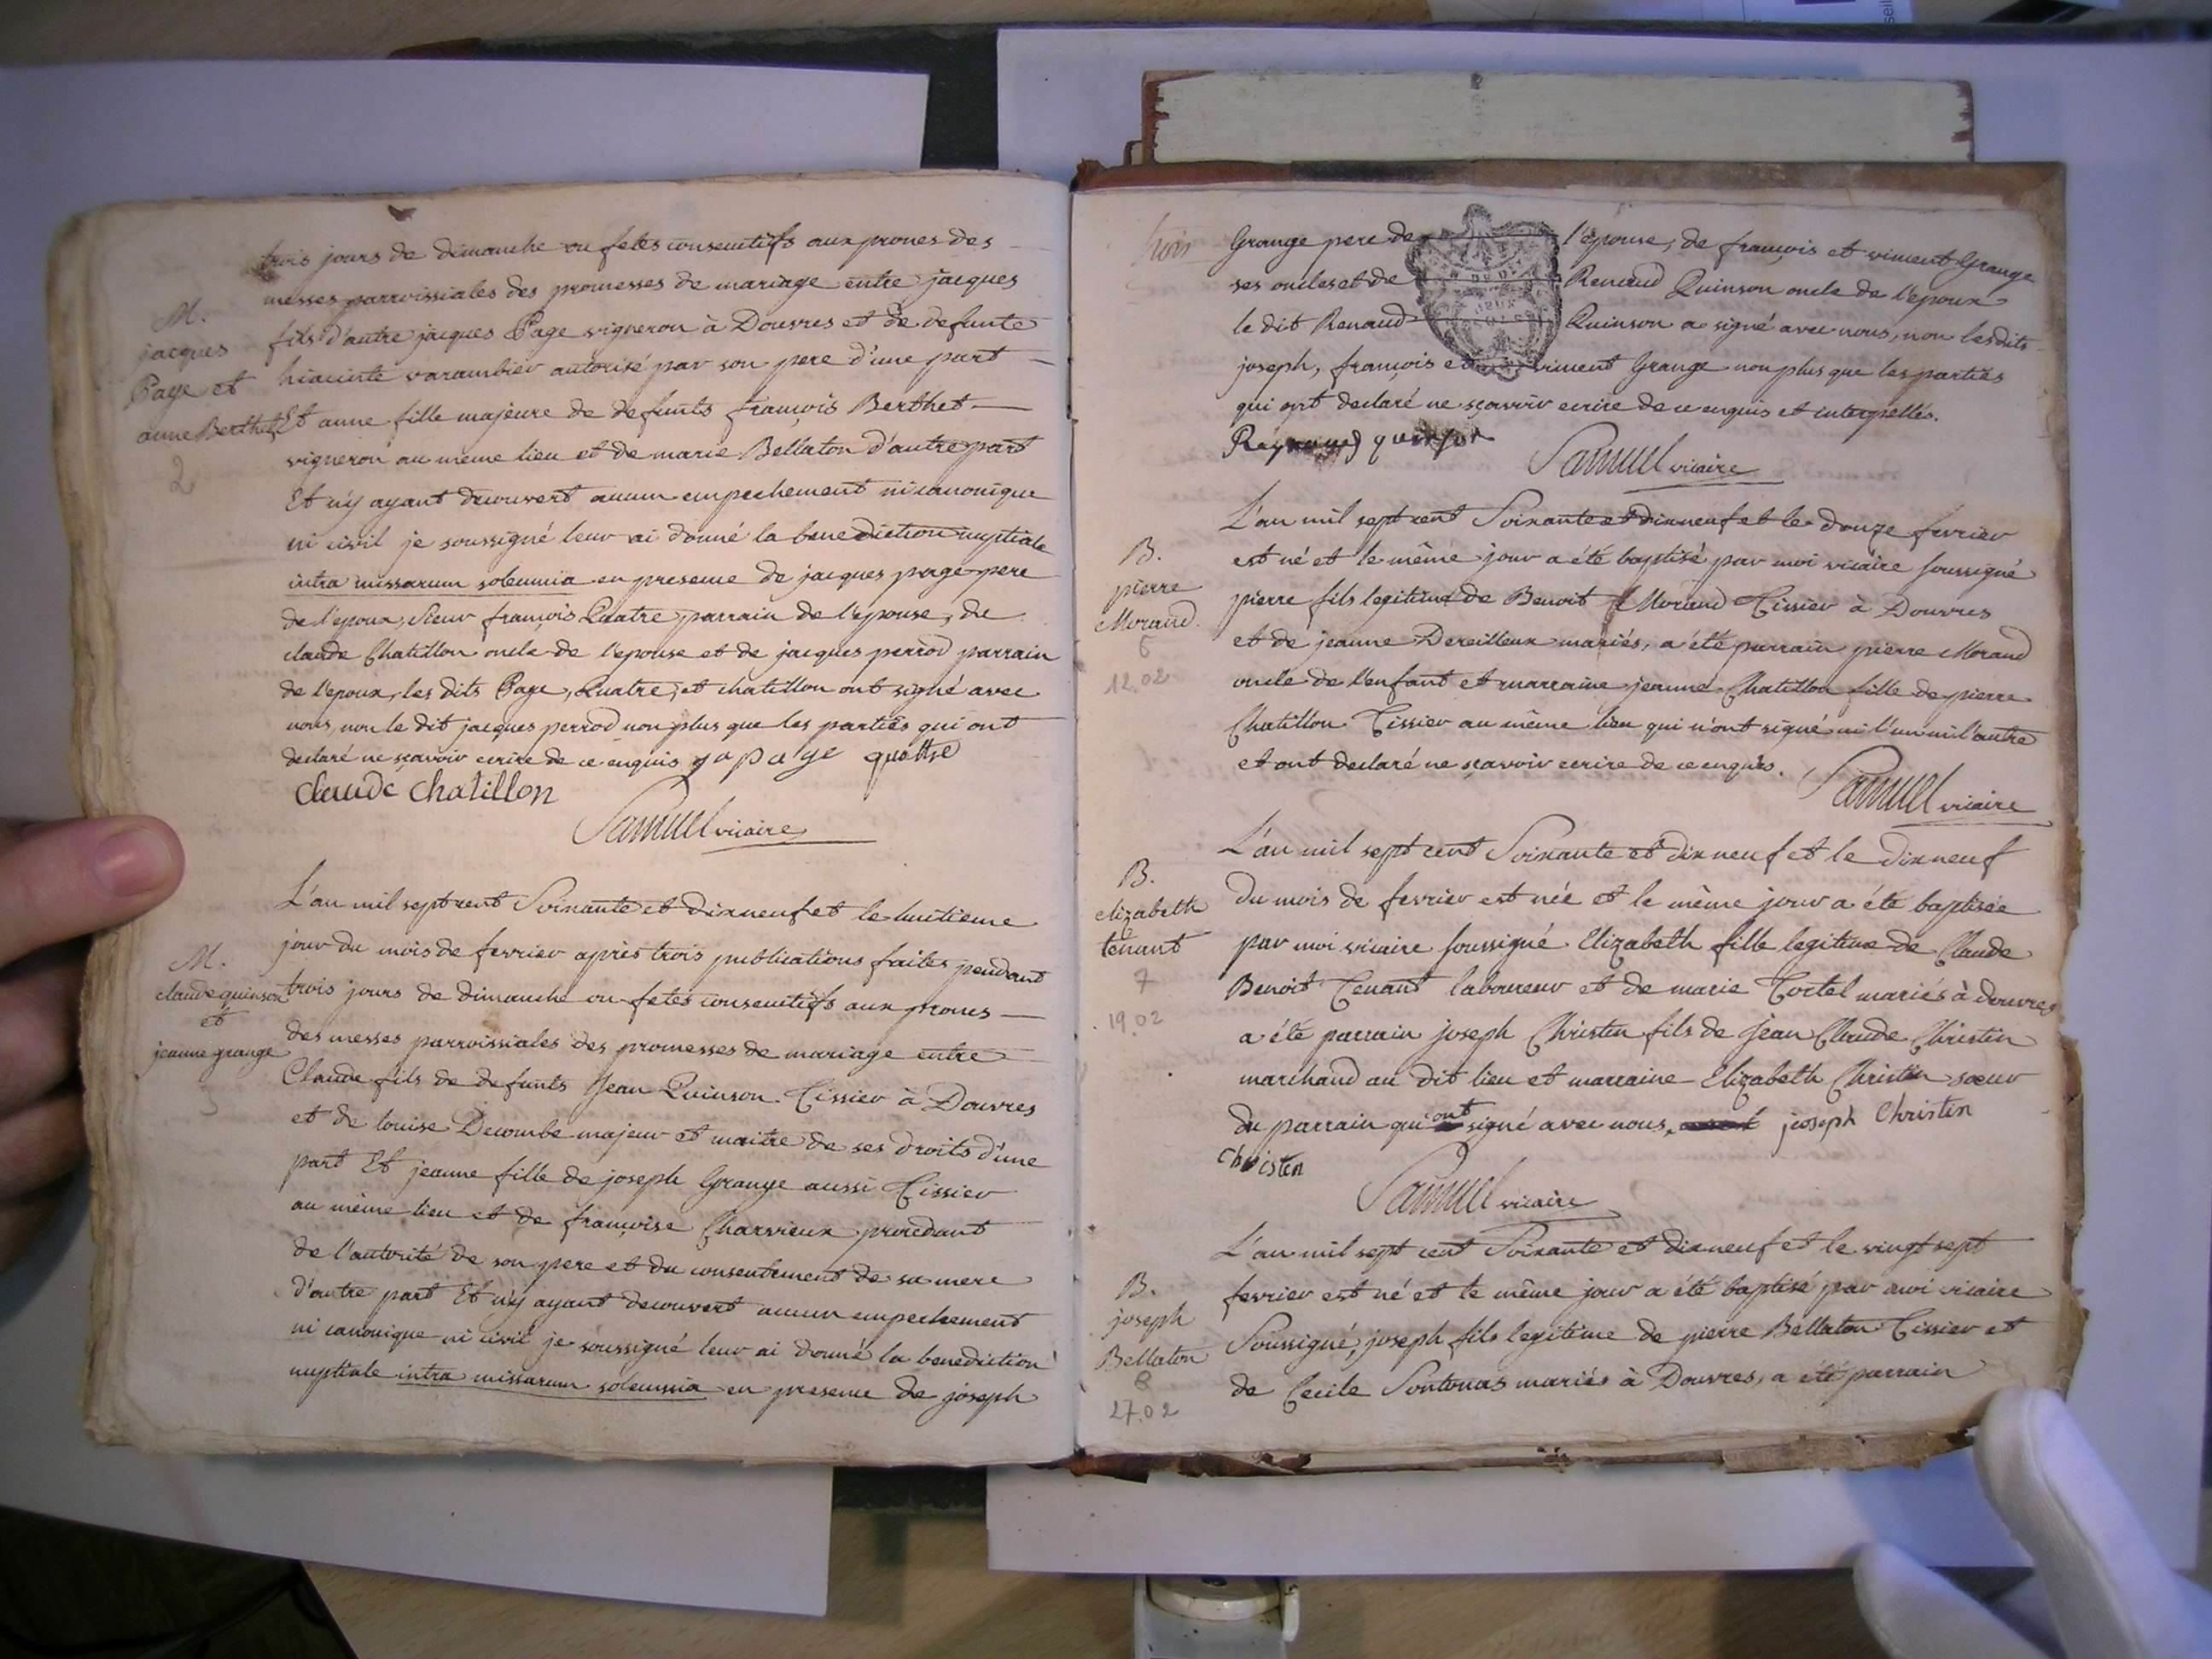 trois jours de dimanche ou fetes consecutifs aux prones des
messes parroissiales des promesses de mariage entre jacques
M.
jacques
Page et
anne Berthet
2
fils d'autre jacques Page vigneron à Douvres et de defunte
hiacinte varambier autorisé par son pere d'une part
Et anne fille majeure de defunts françois Berthet
vigneron au meme lieu et de marie Bellaton d'autre part
Et n'y ayant decouvert aucun empechement ni canonique
ni civil je soussigné leur ai donné la benediction nuptiale
intra missarum solemnia en presence de jacques page pere
de l'epoux, sieur françois Quatre parrain de l'epouse, de
claude Chatillon oncle de l'epouse et de jacques perrod parrain
de l'epoux, les dits Page, Quatre, et chatillon ont signé avec
nous, non le dit jacques perrod non plus que les parties qui ont
declaré ne sçavoir ecrire de ce enquis j a page quattre
Claude Chatillon
Samuel vicaire
M.
claude quinson
et
jeanne grange
3
L'an mil sept cent Soixante et dix neuf et le huitieme
jour du mois de fevrier après trois publications faites pendant
trois jours de dimanche ou fetes consecutifs aux prones
des messes parroissiales des promesses de mariage entre
Claude fils de defunts Jean Quinson Tissier à Douvres
et de louise Decombe majeur et maitre de ses droits d'une
part Et jeanne fille de joseph Grange aussi Tissier
au même lieu et de françoise Charvieux procedant
de l'autorité de son pere et du consentement de sa mere
d'autre part Et n'y ayant decouvert aucun empechement
ni canonique ni civil je soussigné leur ai donné la benediction
nuptiale intra missarum solemnia en presence de joseph
trois
Grange pere de l'epouse, de françois et viment Grange
ses oncles et de Renaud Quinson oncle de l'epoux
le dit Renaud Quinson a signé avec nous, non les dits
joseph, françois et viment Grange non plus que les parties
qui ont declaré ne sçavoir ecrire de ce enquis et interpellés.
Samuel vicaire
B.
pierre
Morand.
6
12.02
L'an mil sept cent Soixante et dix neuf et le douze fevrier
est né et le même jour a été baptisé par moi vicaire soussigné
pierre fils legitime de Benoit Morand Tissier à Douvres
et de jeanne Dereilleux mariés, a été parrain pierre Morand
oncle de l'enfant et marraine jeanne Chatillon fille de pierre
Chatillon Tissier au même lieu qui n'ont signé ni l'un ni l'autre
et ont declaré ne sçavoir ecrire de ce enquis.
Samuel vicaire
B.
elizabeth
tenant
7
19.02
L'an mil sept cent Soixante et dix neuf et le dix neuf
du mois de fevrier est née et le même jour a été baptisée
par moi vicaire soussigné Elizabeth fille legitime de Claude
Benoit Tenant laboureur et de marie Tortel mariés à douvres
a été parrain joseph Christin fils de Jean Claude Christin
marchand au dit lieu et marraine Elizabeth Christin sœur
du parrain qui ont signé avec nous, joseph Christin
Christin
Samuel vicaire
B.
joseph
Bellaton
8
27.02
L'an mil sept cent Soixante et dix neuf et le vingt sept
fevrier est né et le même jour a été baptisé par moi vicaire
Soussigné, joseph fils legitime de pierre Bellaton Tissier et
de Cecile Sontonas mariés à Douvres, a été parrain